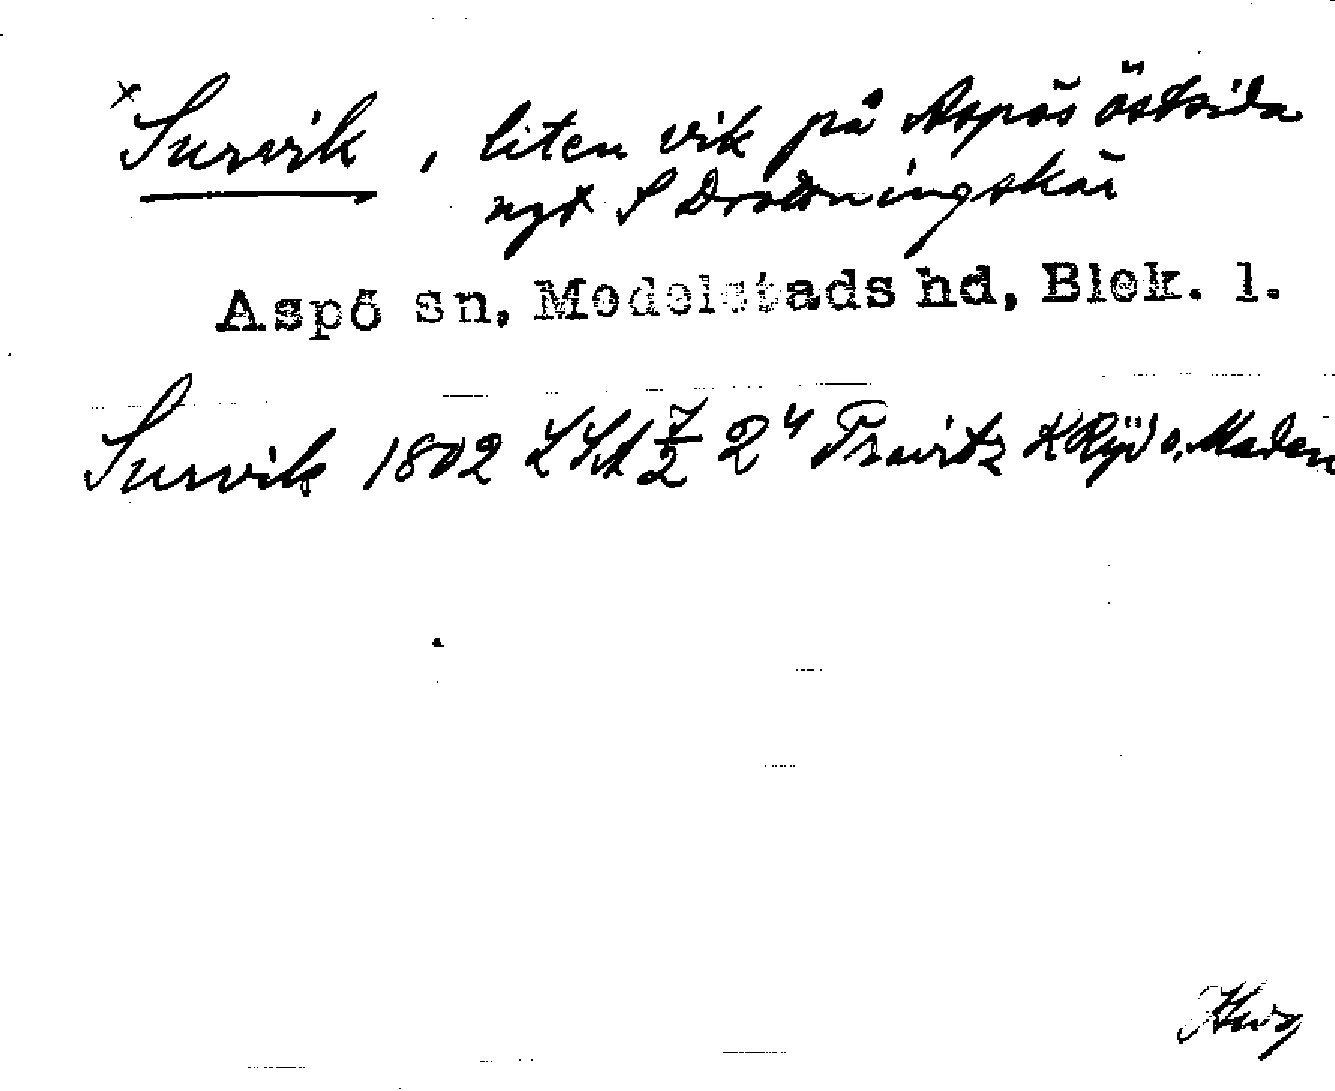 x Survik, liten vik på Aspös östsida
nyt S Drottningskär
Aspö sn, Medelstads hd, Blek. l.
Survik 1802 LSA 7/2 2⁴ K Ryd o. Maden